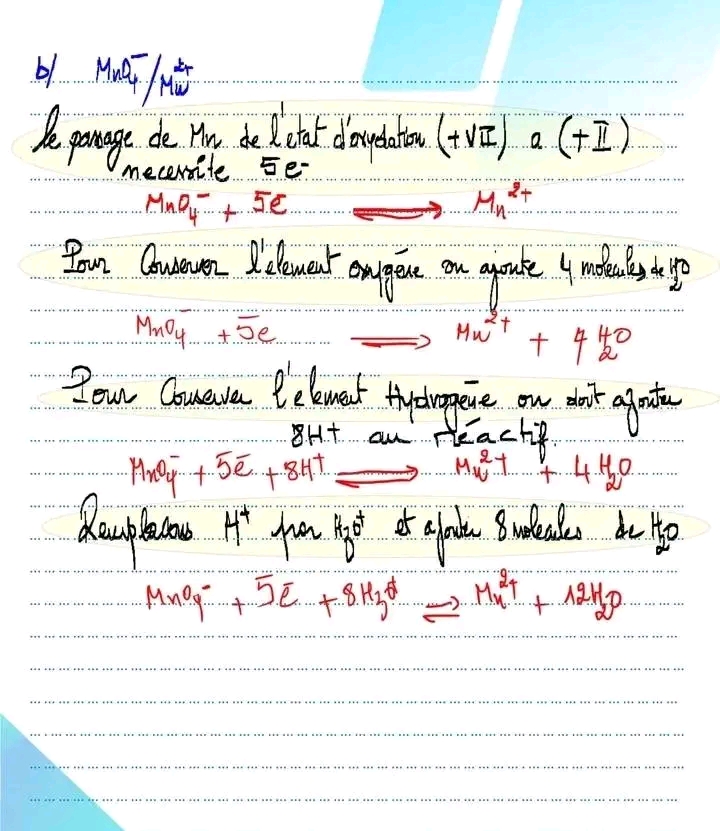 b/ MnO₄⁻/Mn²⁺
le passage de Mn de l'etat d'oxydation (+VII) a (+II)
necessite 5e⁻
MnO₄⁻ + 5e̅ ⇌ Mn²⁺
Pour Conserver l'element oxygéne on ajoute 4 molecules de H₂O
MnO₄⁻ + 5e̅ ⇌ Mn²⁺ + 4 H₂O
Pour Conserver l'element Hydrogéne on doit ajouter
8H+ au réactif.
MnO₄⁻ + 5e̅ + 8H⁺ ⇌ Mn²⁺ + 4 H₂O
Remplacons H⁺ par H₃O⁺ et ajouter 8 molecules de H₂O
MnO₄⁻ + 5e̅ + 8H₃O⁺ ⇌ Mn²⁺ + 12H₂O